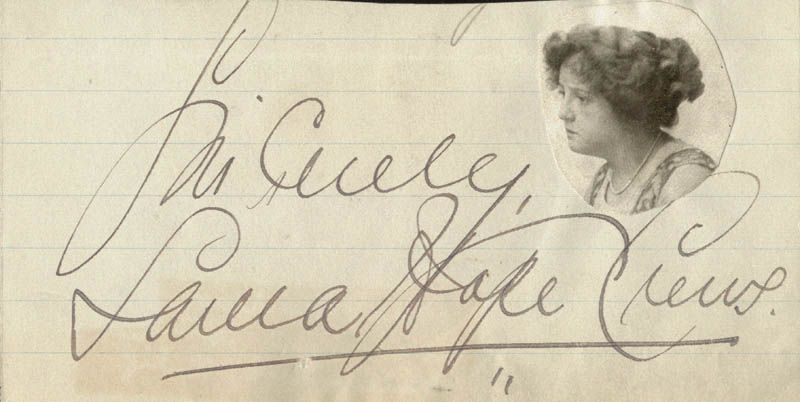 Sincerely,
Laura Hope Crews.